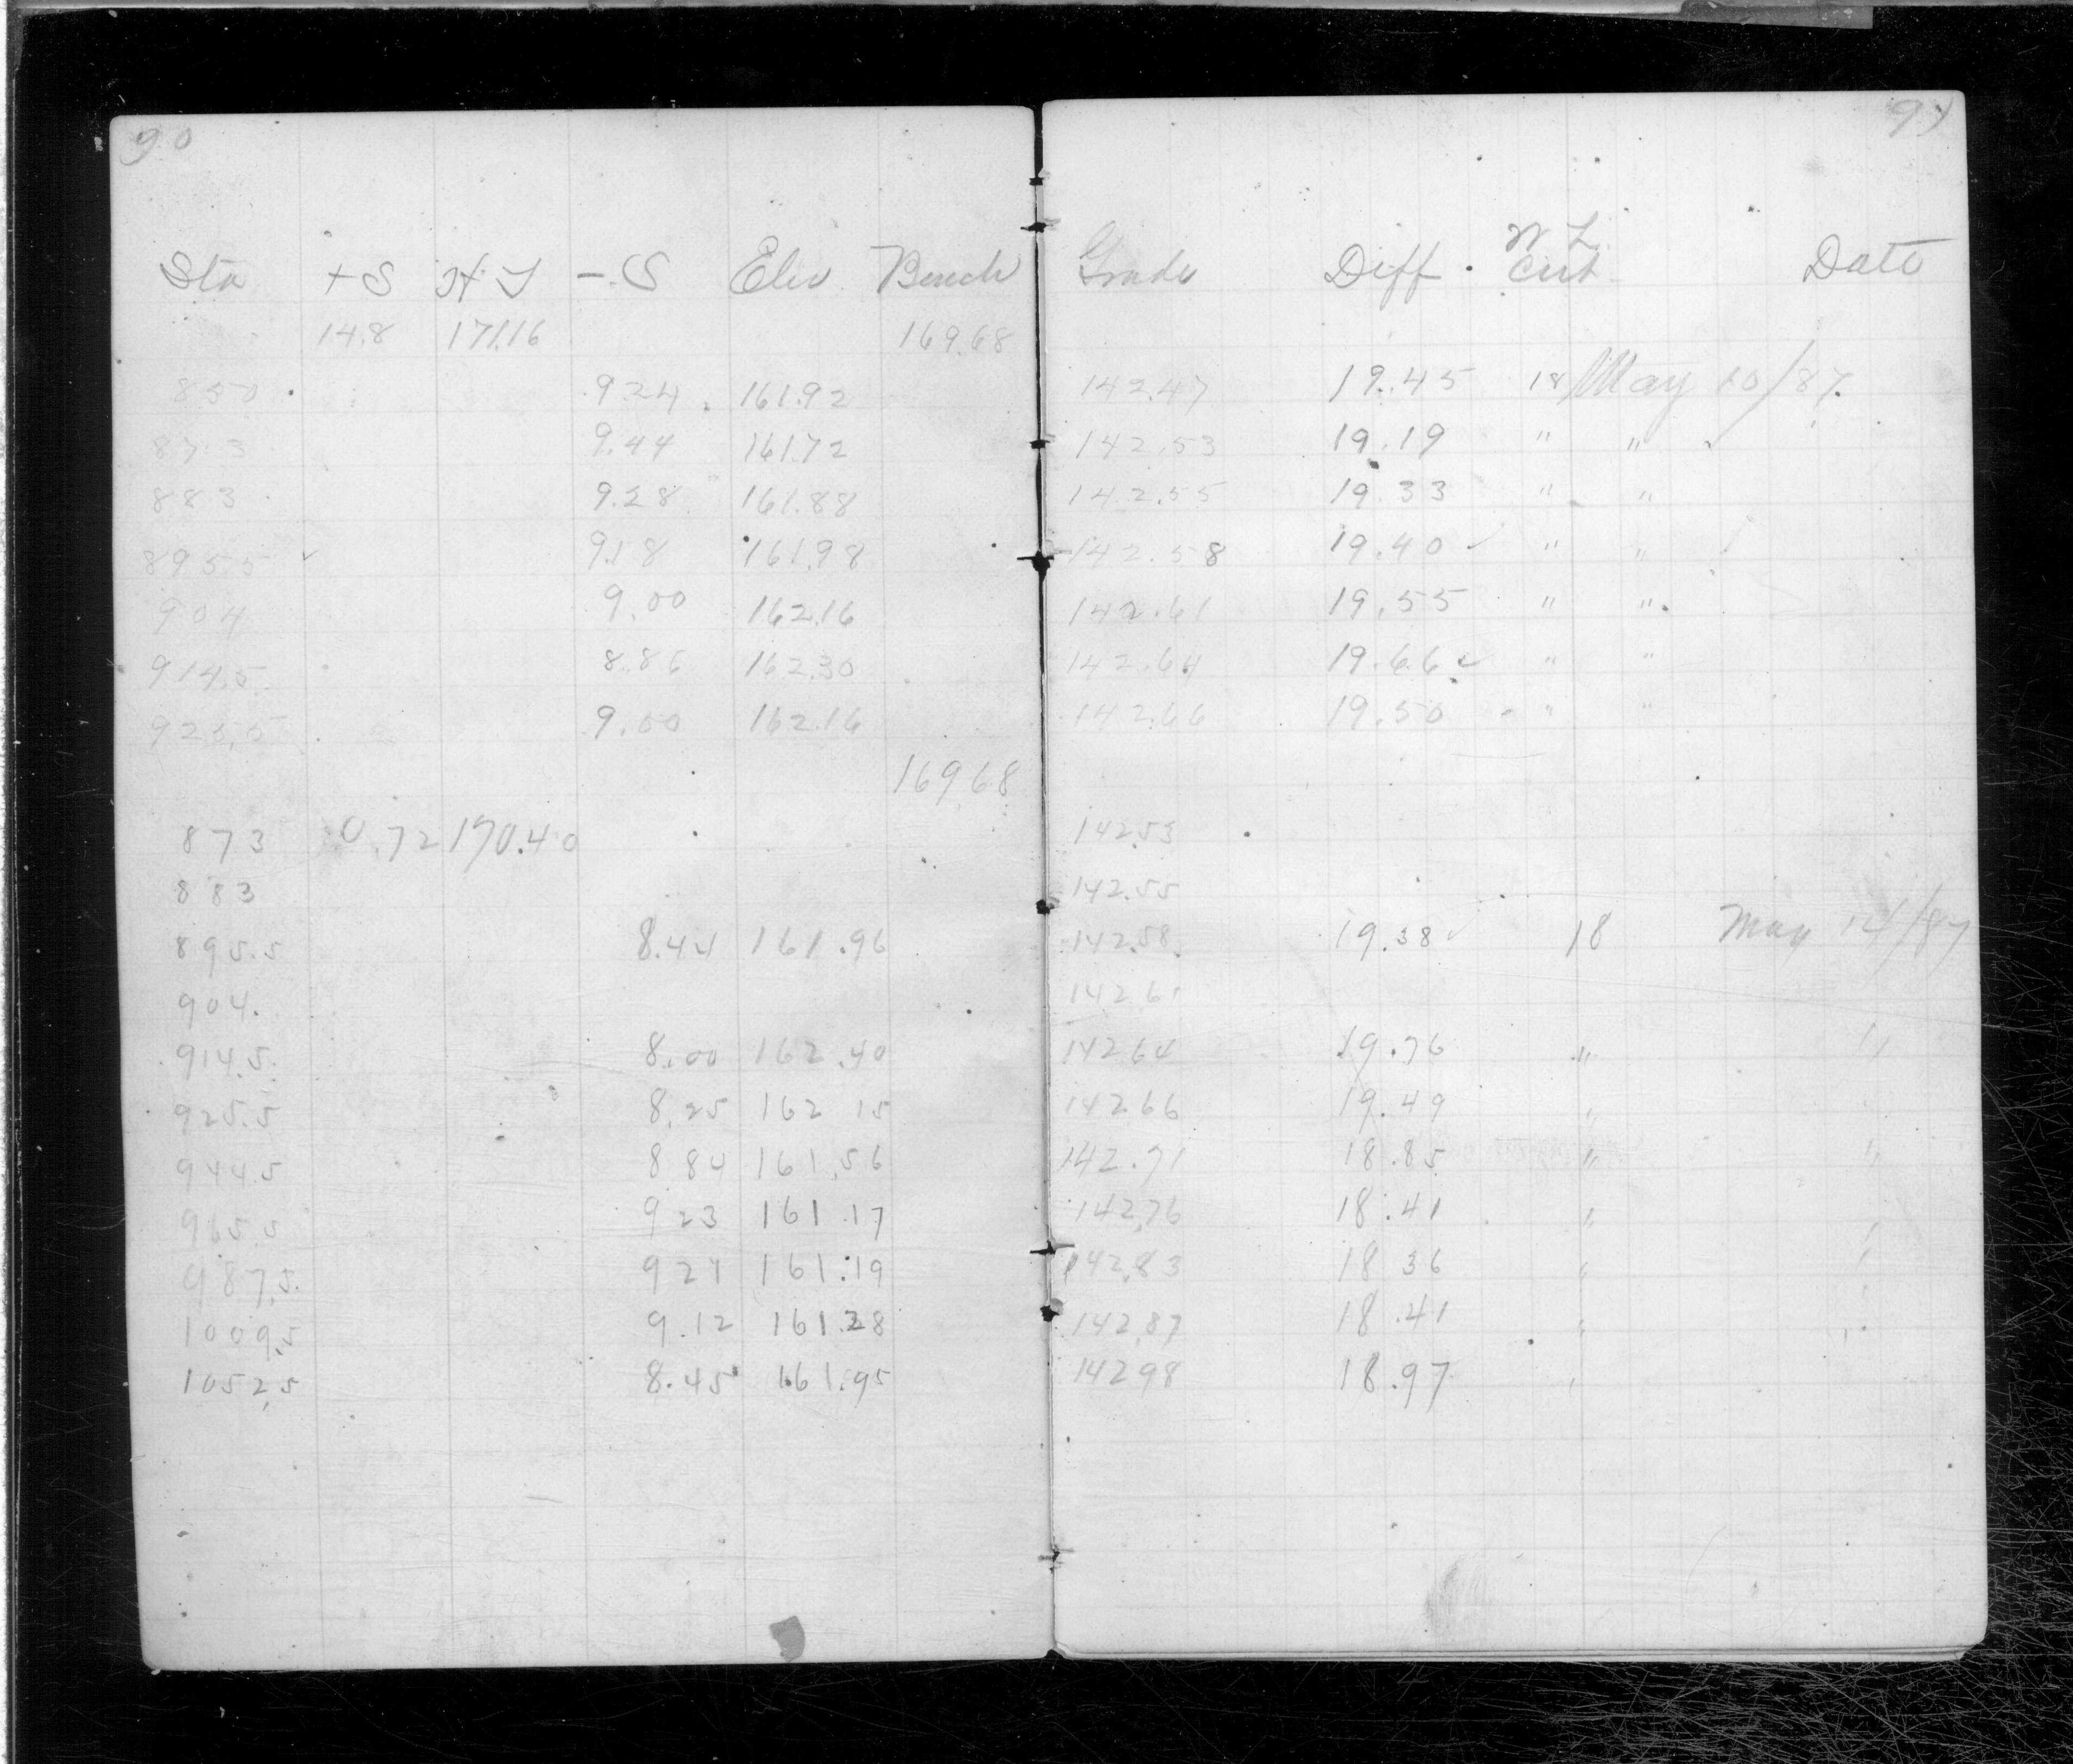 90
Sta +S H.I -S Elev Bench
14.8 171.16 169.68
850 9.24 161.92
873 9.44 161.72
883 9.28 161.88
895.5 9.18 161.98
904 9.00 162.16
914.5 8.86 162.30
925.5 9.00 162.16
169.68
873 0.72 170.40
883
895.5 8.44 161.96
904.
914.5 8.00 162.40
925.5 8.25 162 15
944.5 8 84 161.56
965.5 9 23 161.17
987.5 9 21 161.19
1009.5 9.12 161.28
1052.5 8.45 161.95
91
Grade Diff. Cut Date
142.47 19.45 18 May 10/87.
142.53 19.19 " "
142.55 19.33 " "
142.58 19.40 ✓ " "
142.61 19.55 " "
142.64 19.66 ✓ " "
142.66 19.50 " "
142.53
142.55
142.58 19.38 ✓ 18 May 14/87
142.61
142.64 19.76 " "
142.66 19.49 "
142.71 18.85 " "
142.76 18.41 " "
142.83 18 36 " "
142.87 18.41 " "
142.98 18.97 "